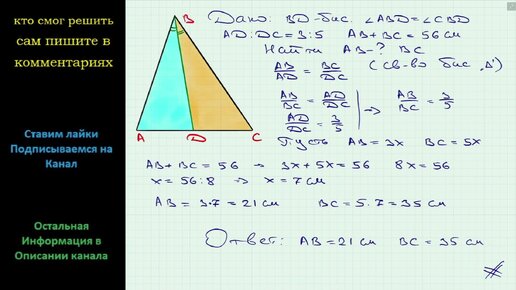 кто смог решить
сам пишите в
комментариях
Ставим лайки
Подписываемся на
Канал
Остальная
Информация в
Описании канала
B
A D C
Дано: BD - бис. ∠ABD = ∠CBD
AD : DC = 3 : 5 AB + BC = 56 см
Найти AB - ? BC
AB/AD = BC/DC (св-во бис. Δ)
AB/BC = AD/DC
AD/DC = 3/5 → AB/BC = 3/5
Пусть AB = 3x BC = 5x
AB + BC = 56 → 3x + 5x = 56 8x = 56
x = 56 : 8 → x = 7 см
AB = 3 · 7 = 21 см BC = 5 · 7 = 35 см
Ответ: AB = 21 см BC = 35 см